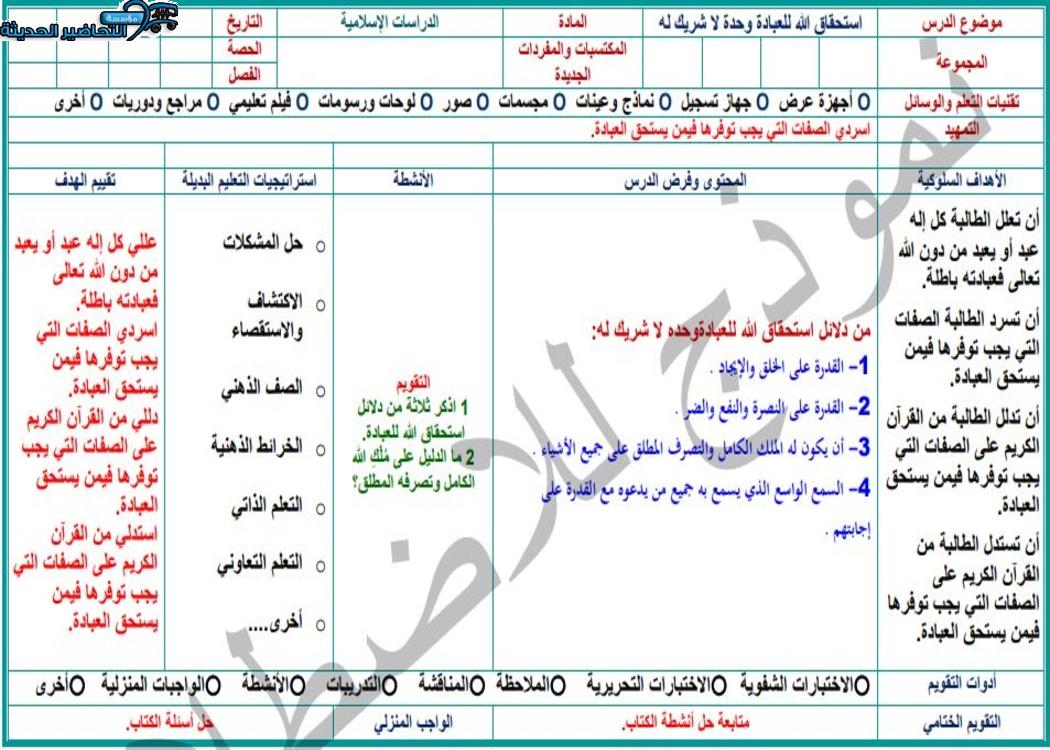 مؤسسة
التحاضير الحديثة
موضوع الدرس
استحقاق الله للعبادة وحدة لا شريك له
المادة
الدراسات الإسلامية
التاريخ
المجموعة
المكتسبات والمفردات
الجديدة
الحصة
الفصل
تقنيات التعلم والوسائل
O أجهزة عرض O جهاز تسجيل O نماذج وعينات O مجسمات O صور O لوحات ورسومات O فيلم تعليمي O مراجع ودوريات O أخرى
التمهيد
اسردي الصفات التي يجب توفرها فيمن يستحق العبادة.
الأهداف السلوكية
المحتوى وفرض الدرس
الأنشطة
استراتيجيات التعليم البديلة
تقييم الهدف
أن تعلل الطالبة كل إله
عبد أو يعبد من دون الله
تعالى فعبادته باطلة.
أن تسرد الطالبة الصفات
التي يجب توفرها فيمن
يستحق العبادة.
أن تدلل الطالبة من القرآن
الكريم على الصفات التي
يجب توفرها فيمن يستحق
العبادة.
أن تستدل الطالبة من
القرآن الكريم على
الصفات التي يجب توفرها
فيمن يستحق العبادة.
من دلائل استحقاق الله للعبادةوحده لا شريك له:
1– القدرة على الخلق والإيجاد .
2– القدرة على النصرة والنفع والضر .
3– أن يكون له الملك الكامل والتصرف المطلق على جميع الأشياء .
4– السمع الواسع الذي يسمع به جميع من يدعوه مع القدرة على
إجابتهم .
التقويم
1 اذكر ثلاثة من دلائل
استحقاق الله للعبادة.
2 ما الدليل على مُلْكِ الله
الكامل وتصرفه المطلق؟
o حل المشكلات
o الاكتشاف
والاستقصاء
o الصف الذهني
o الخرائط الذهنية
o التعلم الذاتي
o التعلم التعاوني
o أخرى....
عللي كل إله عبد أو يعبد
من دون الله تعالى
فعبادته باطلة.
اسردي الصفات التي
يجب توفرها فيمن
يستحق العبادة.
دللي من القرآن الكريم
على الصفات التي يجب
توفرها فيمن يستحق
العبادة.
استدلي من القرآن
الكريم على الصفات التي
يجب توفرها فيمن
يستحق العبادة.
أدوات التقويم
Oالاختبارات الشفوية Oالاختبارات التحريرية Oالملاحظة Oالمناقشة Oالتدريبات Oالأنشطة Oالواجبات المنزلية Oأخرى
التقويم الختامي
متابعة حل أنشطة الكتاب.
الواجب المنزلي
حل أسئلة الكتاب.